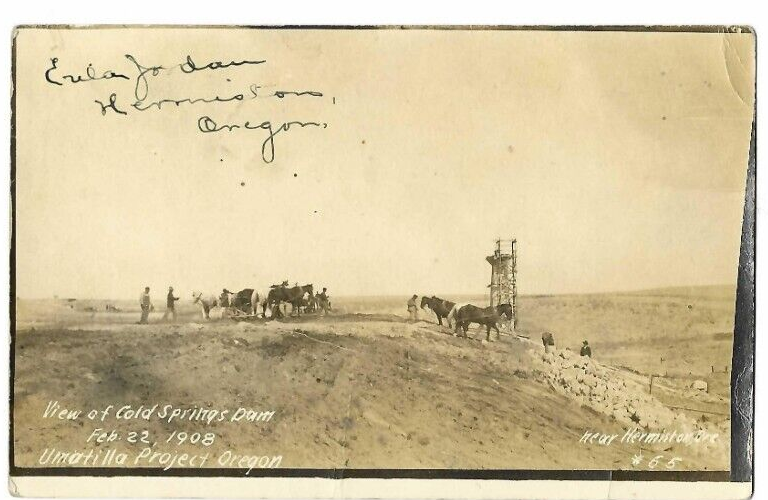 Eula Jordan
Hermiston,
Oregon.
View of Cold Springs Dam
Feb. 22, 1908
Umatilla Project Oregon
near Hermiston, Ore
#65